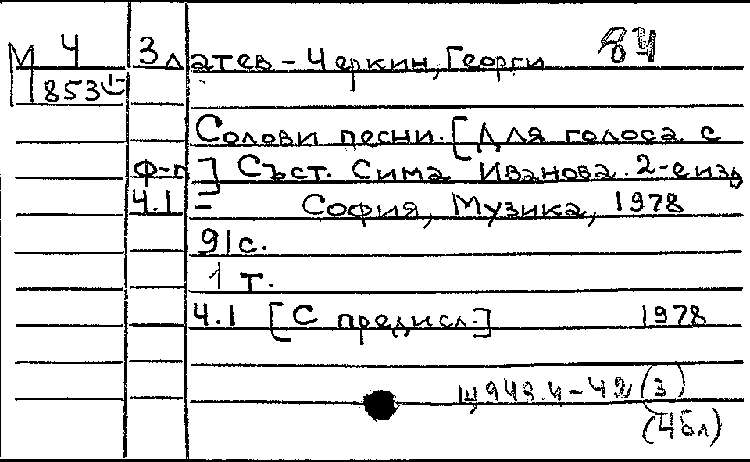 М Ч Златев-Черкин, Георги 84
853
Солови песни. [Для голоса с
ф-п] Съст. Сима Иванова. 2-е изд
Ч.1 - София, Музика, 1978
91с.
1 т.
Ч.1 [С предисл.] 1978
Щ949.4-42 (3)
(Ч Бл)